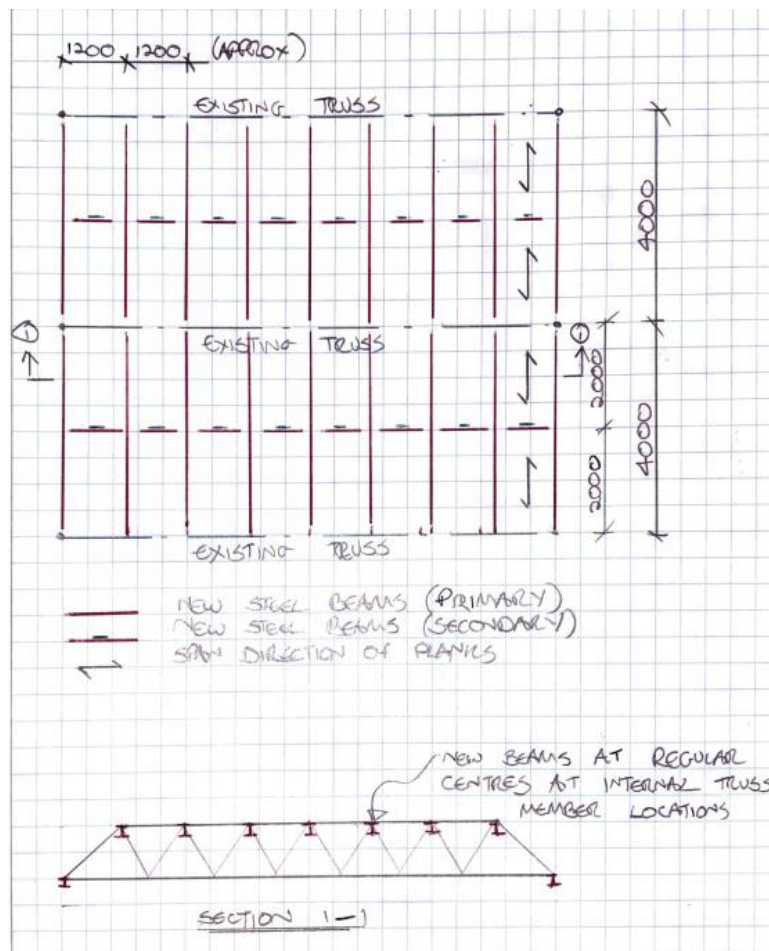 1200 1200 (APPROX)
EXISTING TRUSS
4000
EXISTING TRUSS
1
1
2000
4000
2000
EXISTING TRUSS
NEW STEEL BEAMS (PRIMARY)
NEW STEEL BEAMS (SECONDARY)
SPAN DIRECTION OF PLANKS
NEW BEAMS AT REGULAR
CENTRES AT INTERNAL TRUSS
MEMBER LOCATIONS
SECTION 1-1